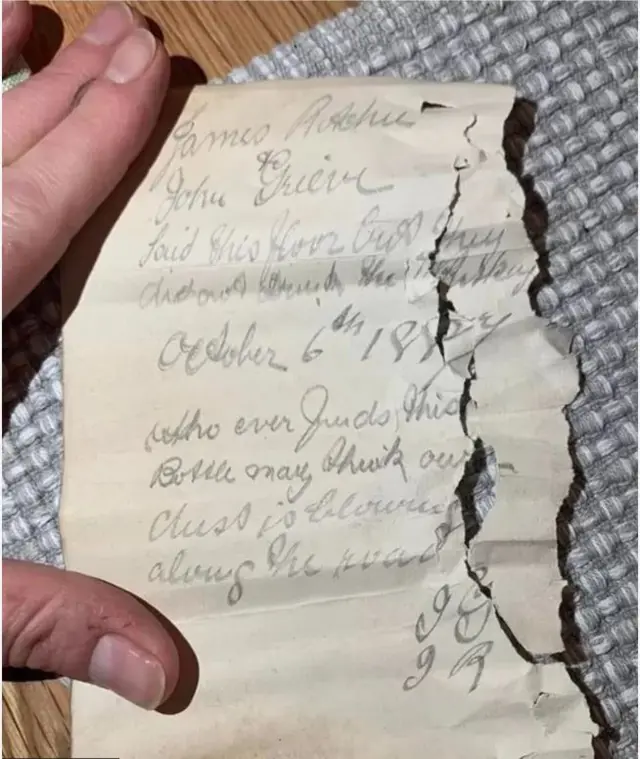 James Ritchie
& 
John Grieve
laid this floor but they
did not drink the Whisky
October 6th 1887
Who ever finds this
Bottle may think our
dust is blowing
along the road
J G
J R